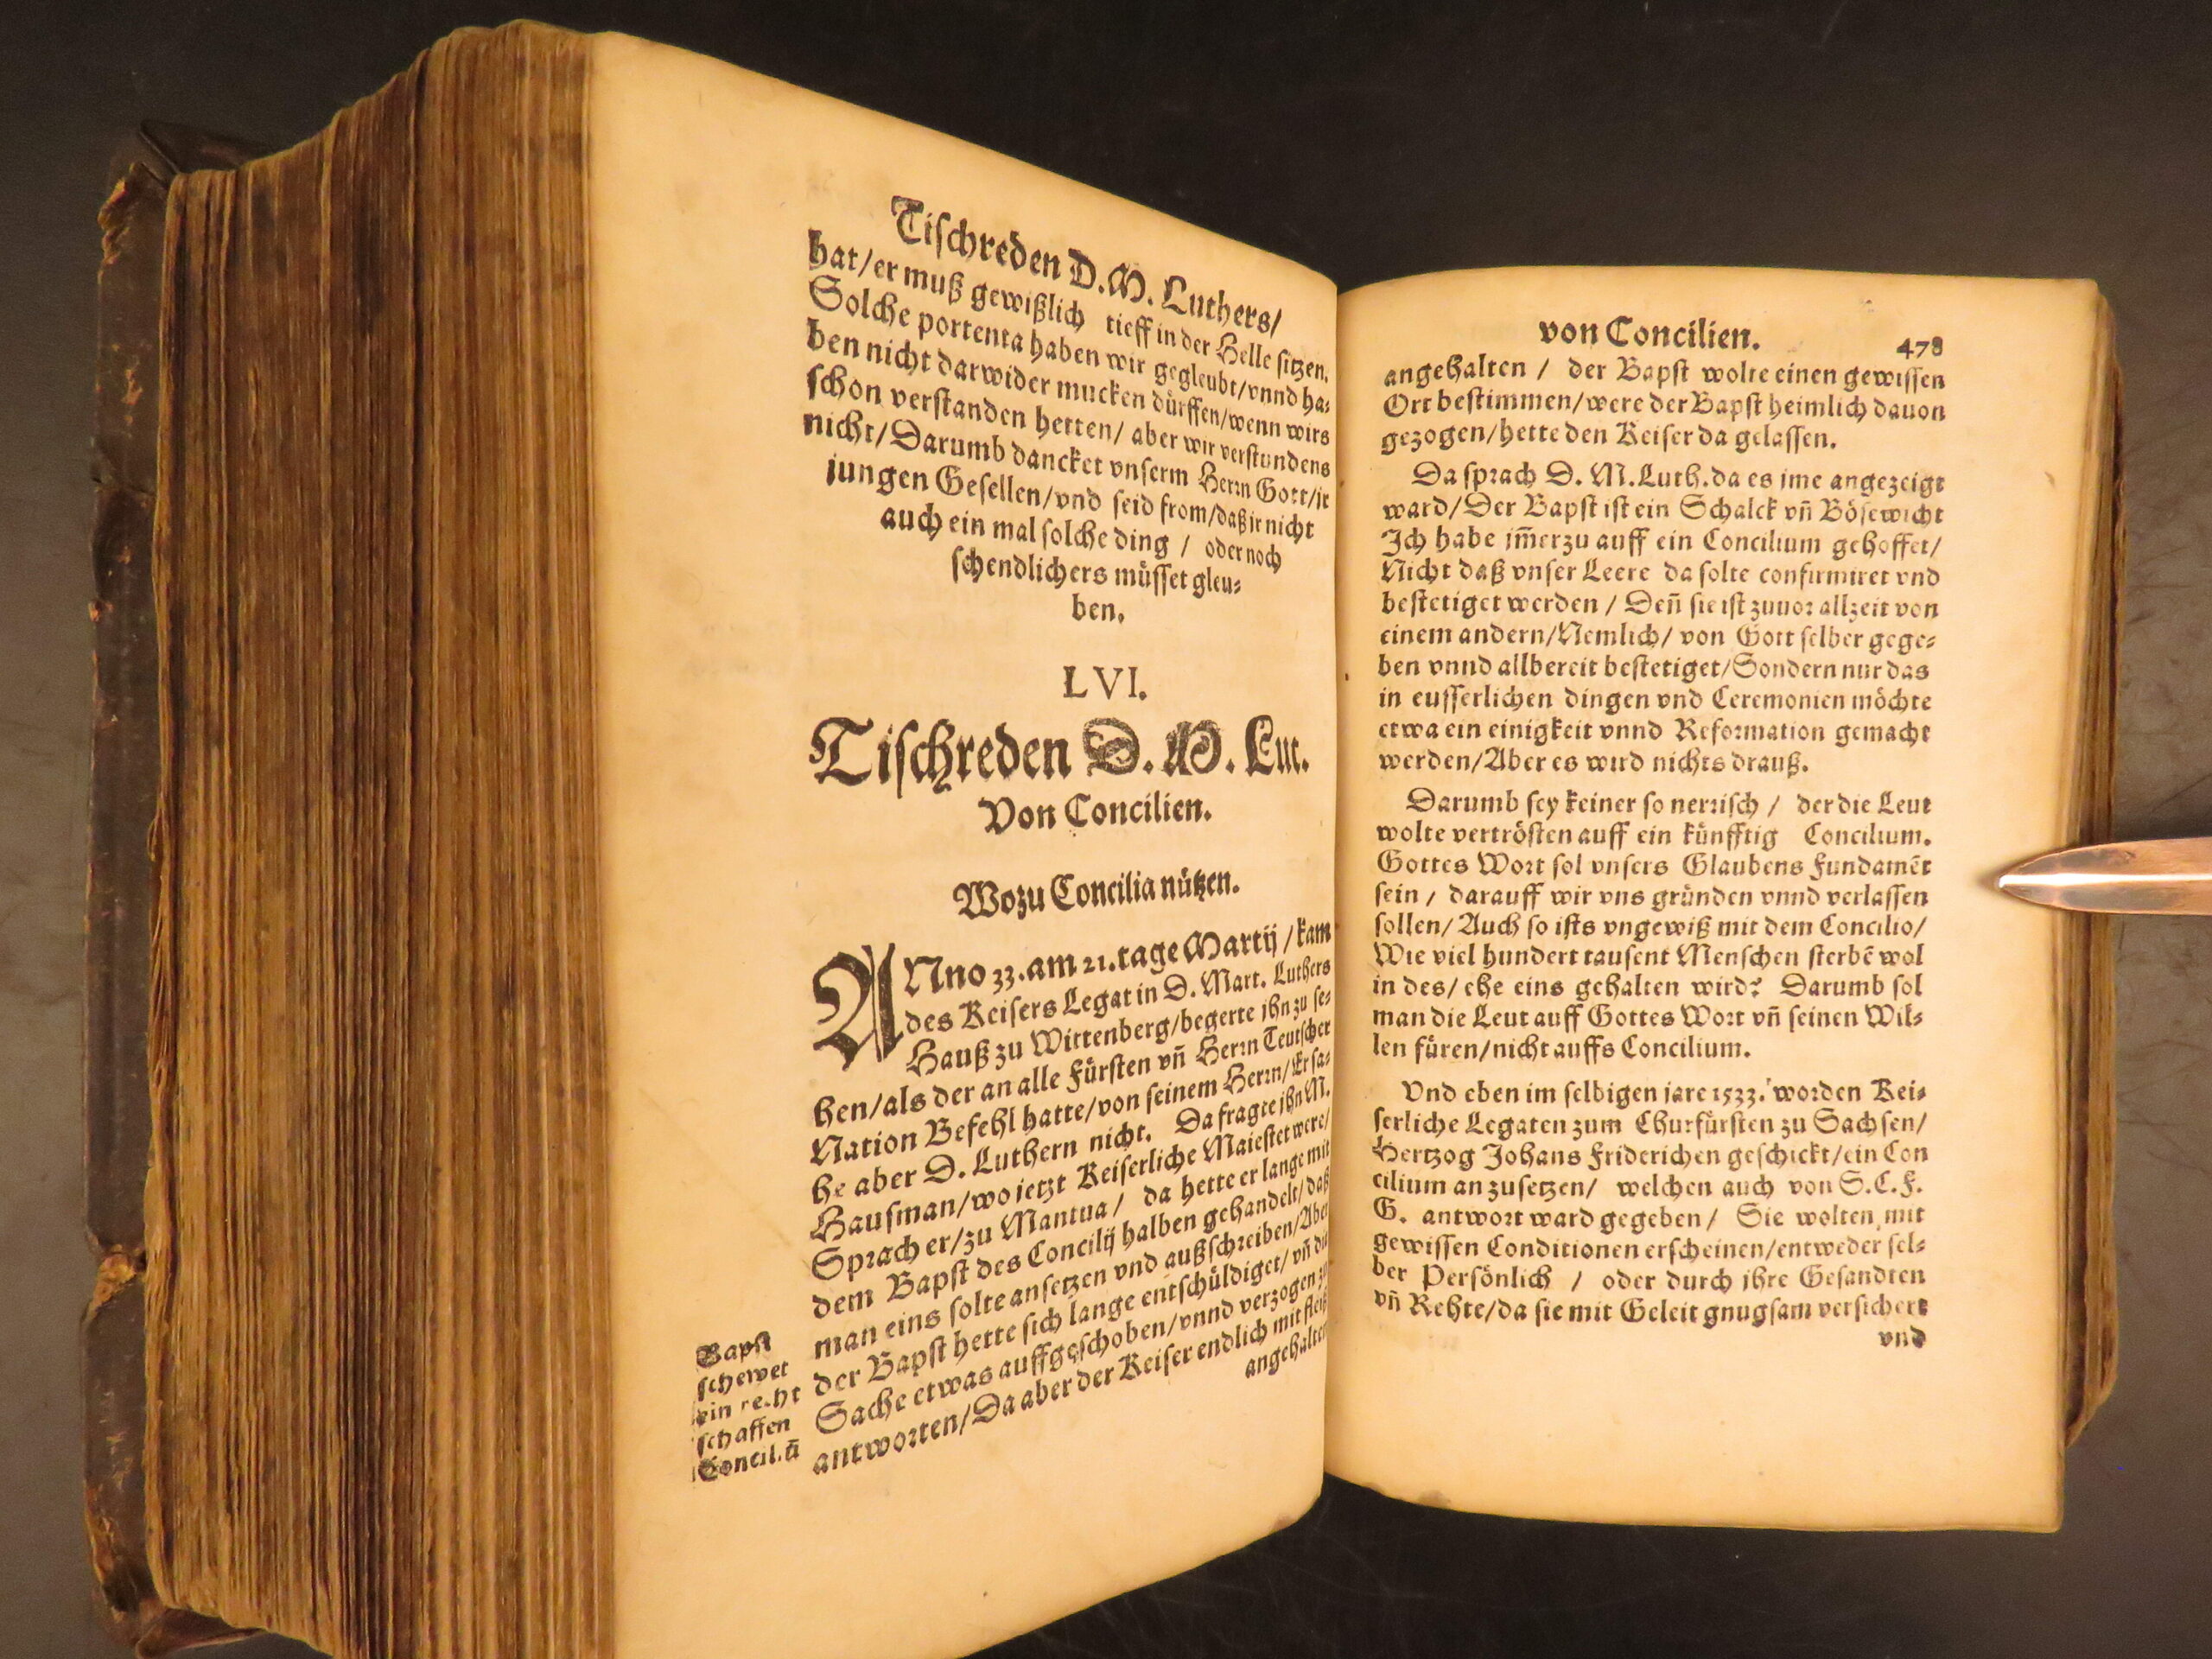 Tiſchreden D. M. Luthers/
hat/er muß gewißlich tieff in der Helle ſitzen.
Solche portenta haben wir gegleubt/vnnd ha⸗
ben nicht darwider mucken dürffen/wenn wirs
ſchon verſtanden hetten/ aber wir verſtundens
nicht/Darumb dancket vnſerm Herrn Gott/ir
jungen Geſellen/vnd ſeid from/daß ir nicht
auch ein mal ſolche ding / oder noch
ſchendlichers müſſet gleu⸗
ben.
LVI.
Tiſchreden D. M. Lut.
Von Concilien.
Wozu Concilia nützen.
ANno 33. am 21. tage Martij / kam
des Keiſers Legat in D. Mart. Luthers
Hauß zu Wittenberg/begerte jhn zu ſe⸗
hen/als der an alle Fürſten vñ Herrn Teutſcher
Nation Befehl hatte/von ſeinem Herrn/Er ſa⸗
he aber D. Luthern nicht. Da fragte jhn M.
Hauſman/wo jetzt Keiſerliche Maieſtet were/
Sprach er/zu Mantua/ da hette er lange mit
dem Bapſt des Concilij halben gehandelt/daß
man eins ſolte anſetzen vnd außſchreiben/Aber
der Bapſt hette ſich lange entſchüldiget/vñ die
Sache etwas auffgeſchoben/vnnd verzogen zu
antworten/Da aber der Keiſer endlich mit fleiß
angehalten
Bapſt
ſchewet
ein recht
ſchaffen
Conciliū
von Concilien. 478
angehalten / der Bapſt wolte einen gewiſſen
Ort beſtimmen/were der Bapſt heimlich dauon
gezogen/hette den Keiſer da gelaſſen.
Da ſprach D. M. Luth. da es jme angezeigt
ward/Der Bapſt iſt ein Schalck vñ Böſewicht
Ich habe jm̃erzu auff ein Concilium gehoffet/
Nicht daß vnſer Leere da ſolte confirmiret vnd
beſtetiget werden / Deñ ſie iſt zuuor allzeit von
einem andern/Nemlich/ von Gott ſelber gege⸗
ben vnnd allbereit beſtetiget/Sondern nur das
in euſſerlichen dingen vnd Ceremonien möchte
etwa ein einigkeit vnnd Reformation gemacht
werden/Aber es wird nichts drauß.
Darumb ſey keiner ſo nerriſch / der die Leut
wolte vertröſten auff ein künfftig Concilium.
Gottes Wort ſol vnſers Glaubens Fundamēt
ſein / darauff wir vns gründen vnnd verlaſſen
ſollen/ Auch ſo iſts vngewiß mit dem Concilio/
Wie viel hundert tauſent Menſchen ſterbē wol
in des/ ehe eins gehalten wird? Darumb ſol
man die Leut auff Gottes Wort vñ ſeinen Wil⸗
len füren/nicht auffs Concilium.
Vnd eben im ſelbigen jare 1533. worden Kei⸗
ſerliche Legaten zum Churfürſten zu Sachſen/
Hertzog Johans Friderichen geſchickt/ein Con
cilium anzuſetzen/ welchen auch von S. C. F.
G. antwort ward gegeben/ Sie wolten mit
gewiſſen Conditionen erſcheinen/entweder ſel⸗
ber Perſönlich / oder durch jhre Geſandten
vñ Rehte/da ſie mit Geleit gnugſam verſichert
vnd